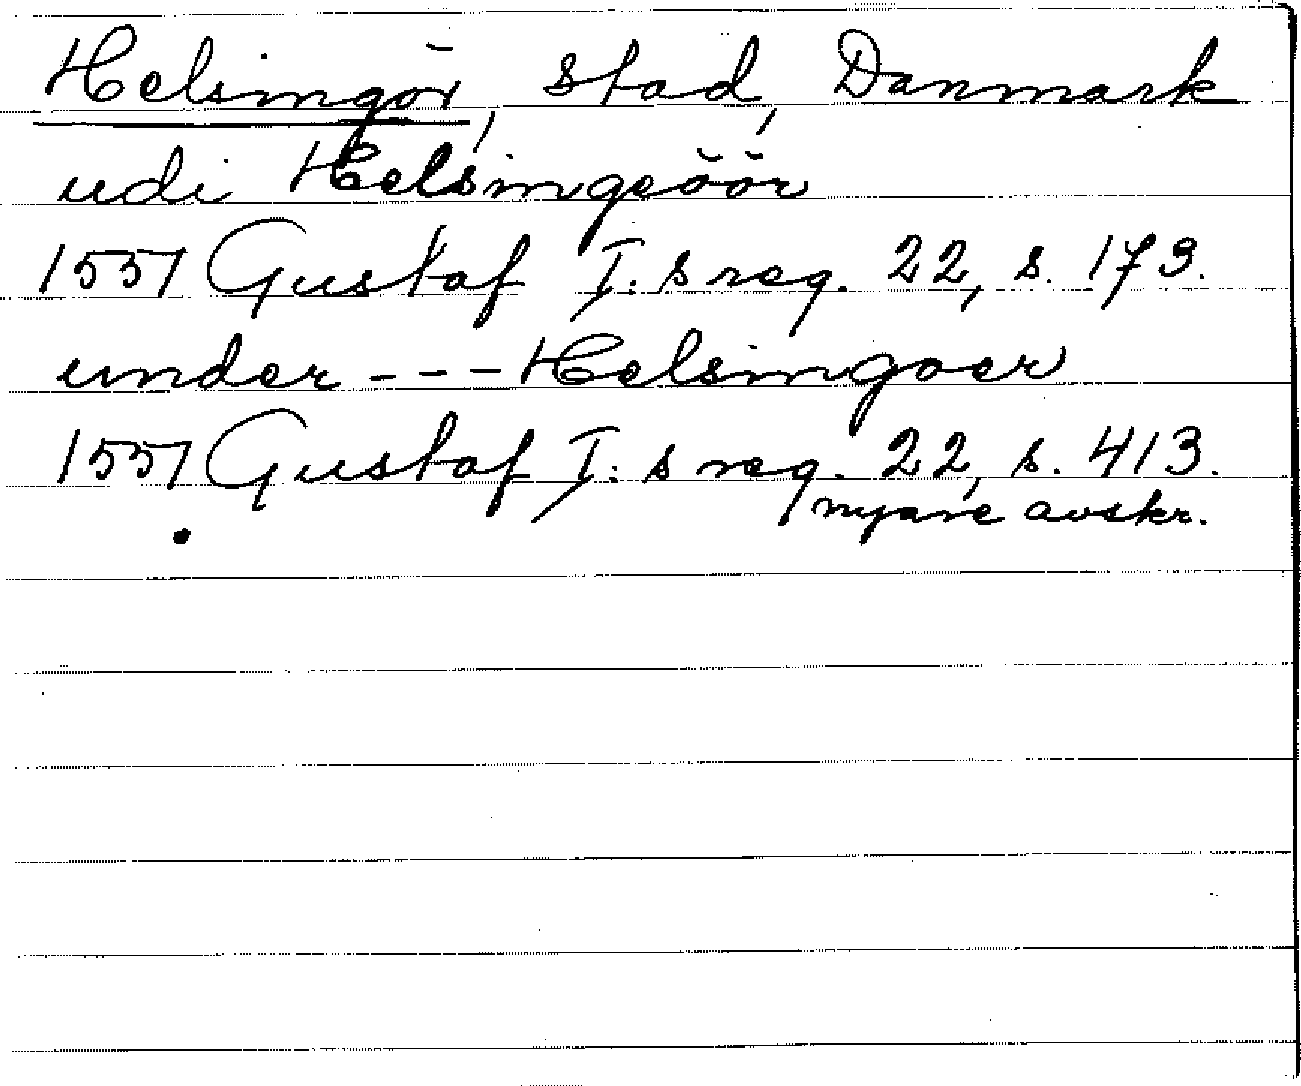 Helsingör, stad, Danmark
udi Helsingeöör
1551 Gustaf I:s reg. 22, s. 173.
under - - - Helsingoer
1551 Gustaf I:s reg. 22, s. 413.
nyare avskr.